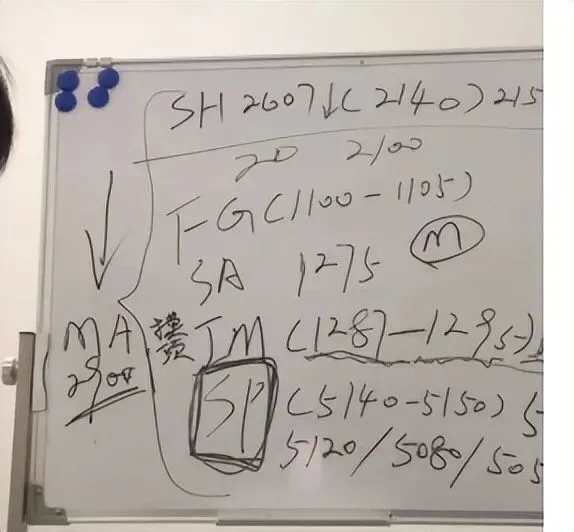 SH 2607↓(2140) 215
20 2100
FG (1100-1105)
SA 1275 M
JM (1287-1295)
MA
2900
SP (5140-5150) 5
5120/5080/505